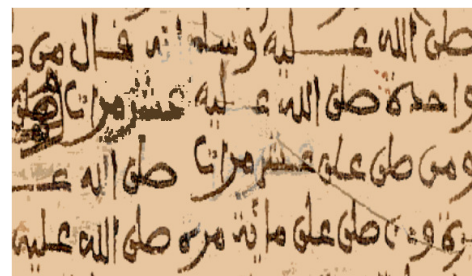 صلى الله عليه وسلم انه قال من
واحده صلى الله عليه عشر مرات
ومن صلى على عشر مرات صلى الله
ومن صلى على مائة مره صلى الله عليه